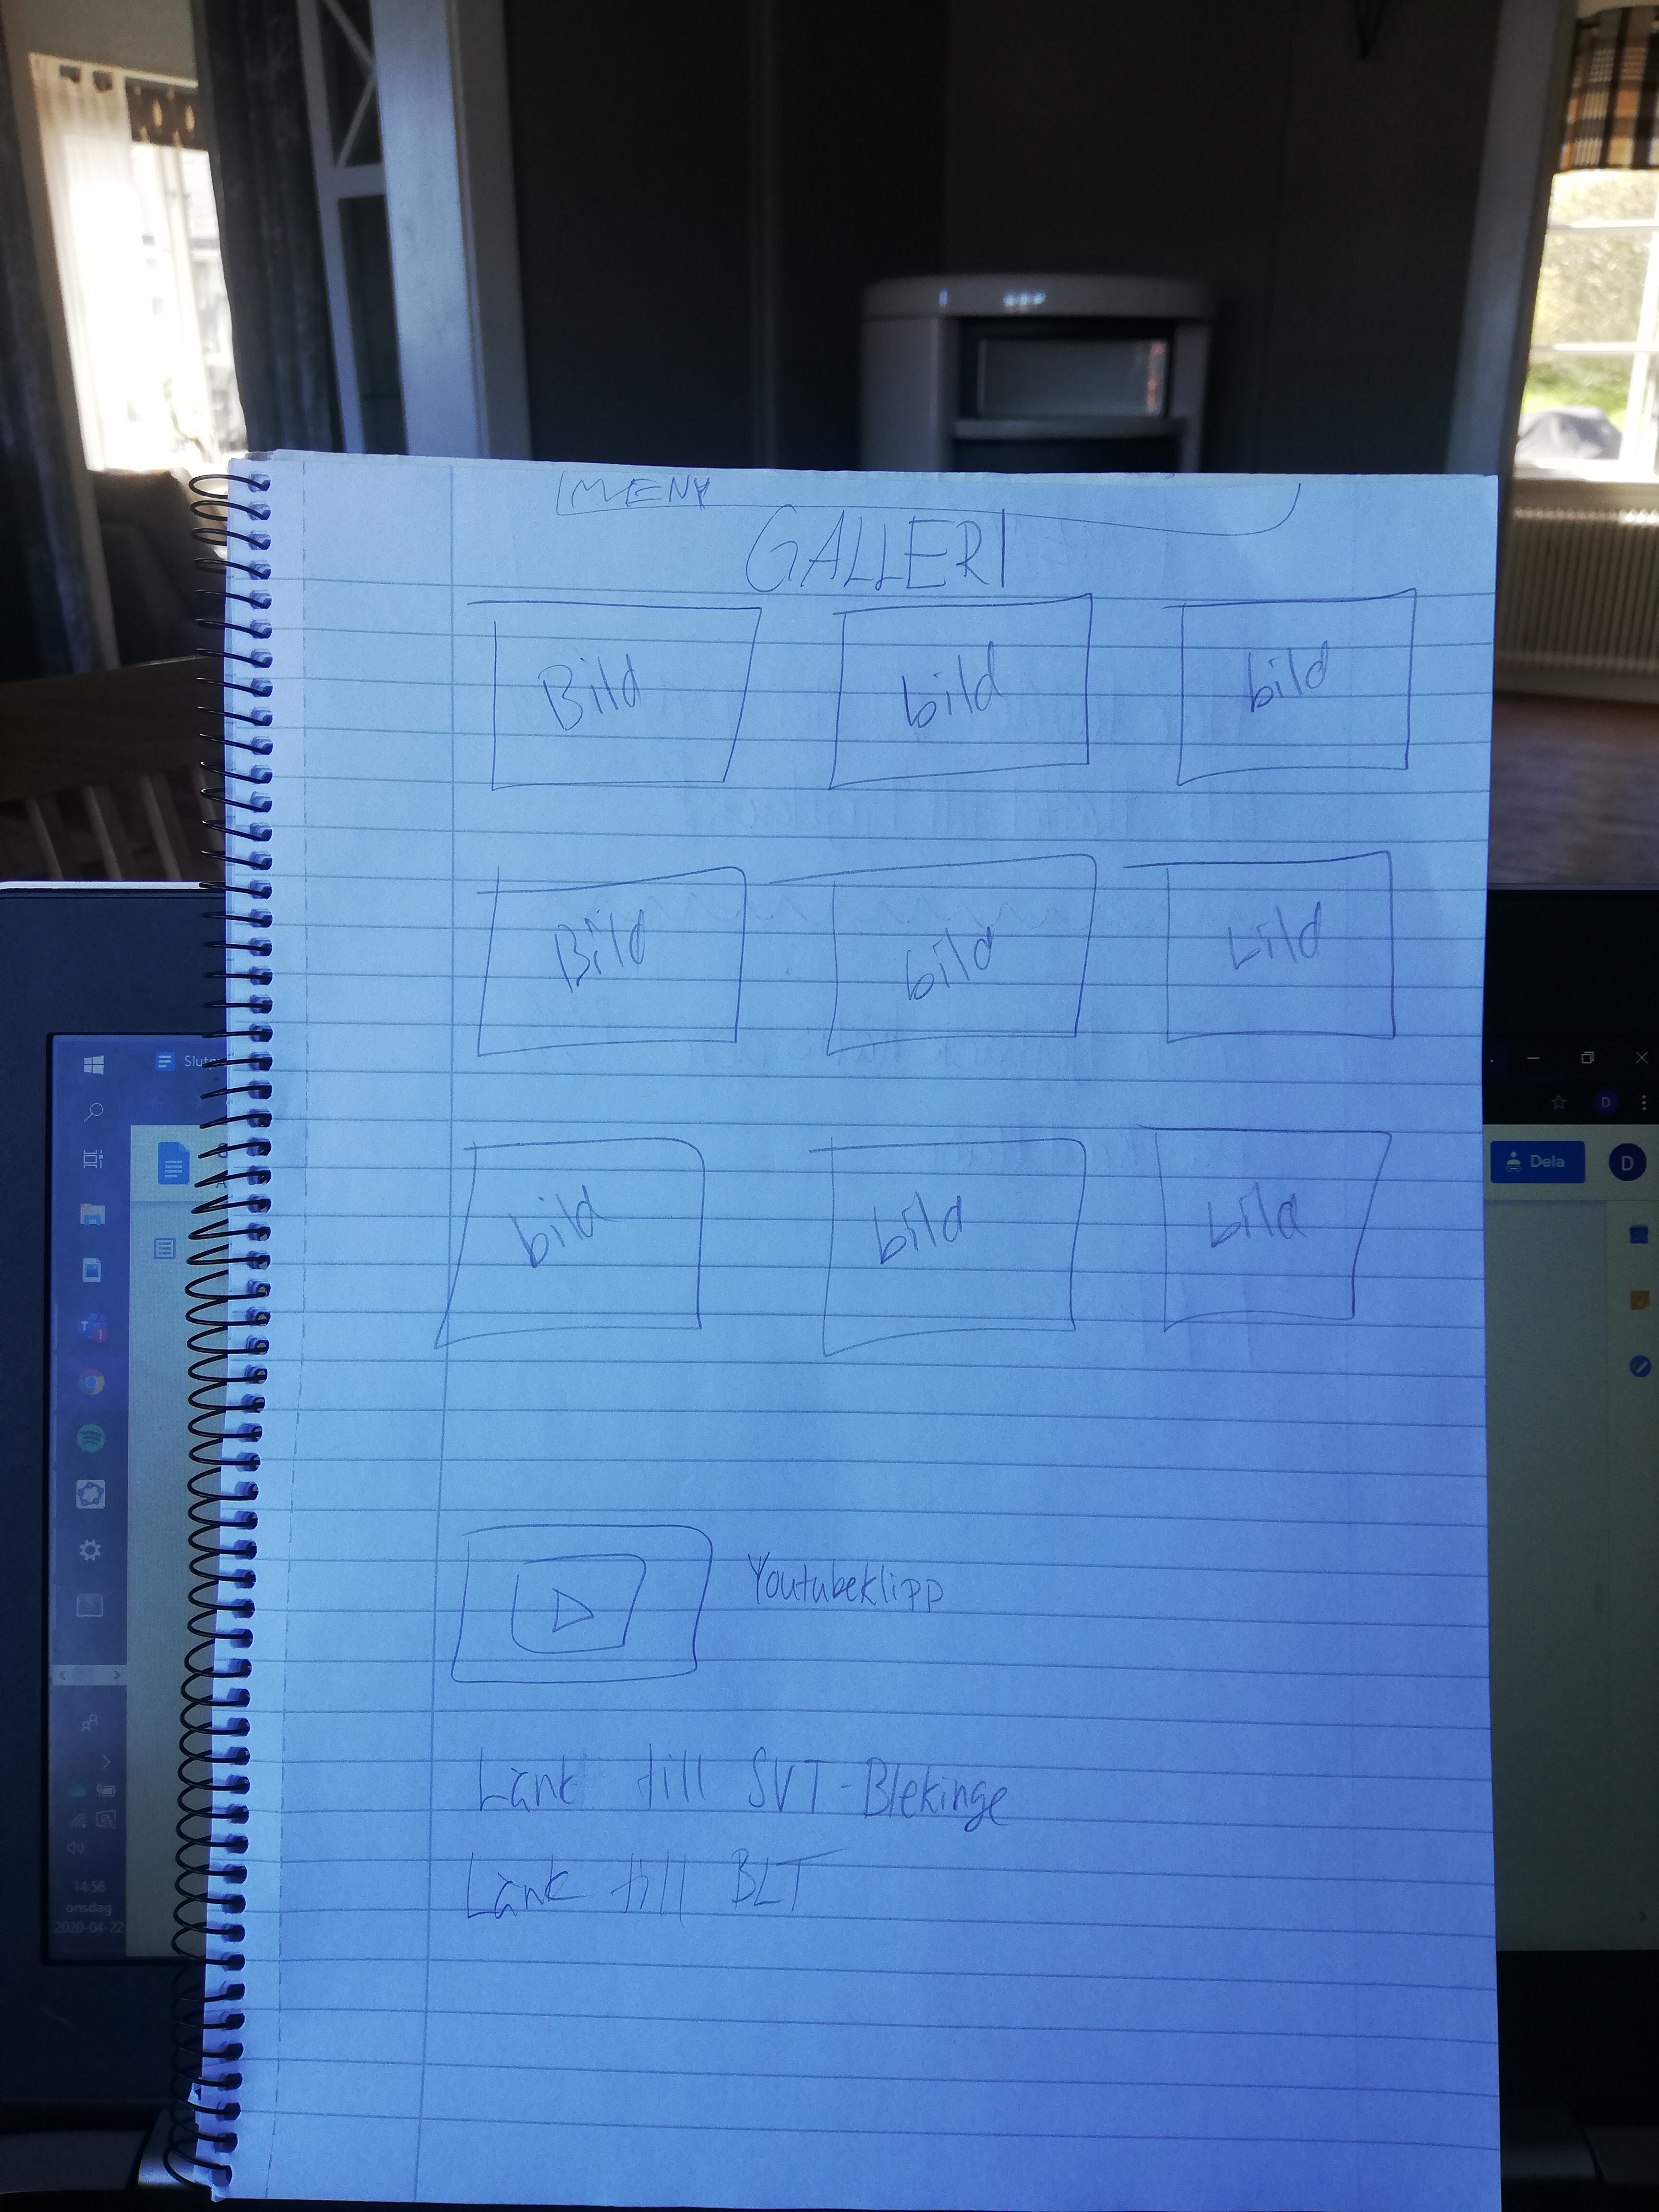 MENY
GALLERI
Bild bild bild
Bild bild bild
bild bild bild
Youtubeklipp
Länk till SVT-Blekinge
Länk till BLT
Dela
D
D
14:56
onsdag
2020-04-22